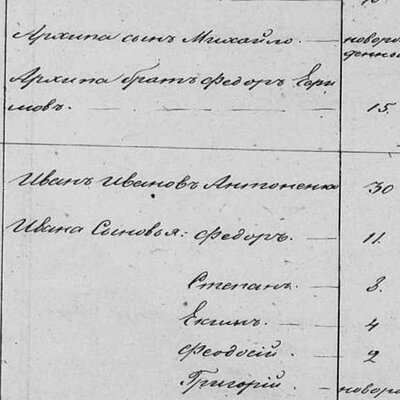 Архипа сынъ Михайло. новоро
денный
Архипа братъ Федоръ Ефи
мовъ. 15.
Иванъ Ивановъ Антоненко 30
Ивана Сыновья: Федоръ. 11.
Степанъ. 8.
4
Феодосій. 2
Григорій новоро